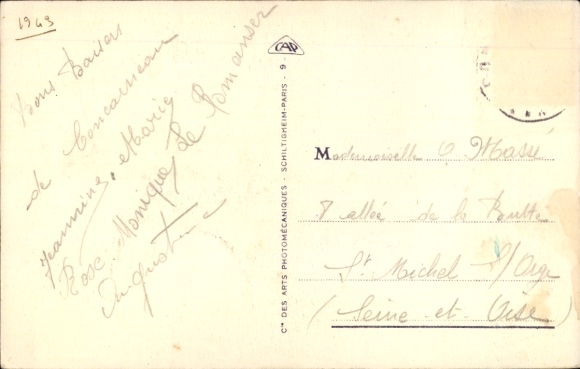 1943
Bons Baisers
de Concarneau
Jeannine, Marie
Rose Monique Le
Augustine
CAP
Cie DES ARTS PHOTOMÉCANIQUES - SCHILTIGHEIM-PARIS - 9
Mademoiselle O Massé
8 allée de la
St Michel s/Orge
(Seine-et-Oise)